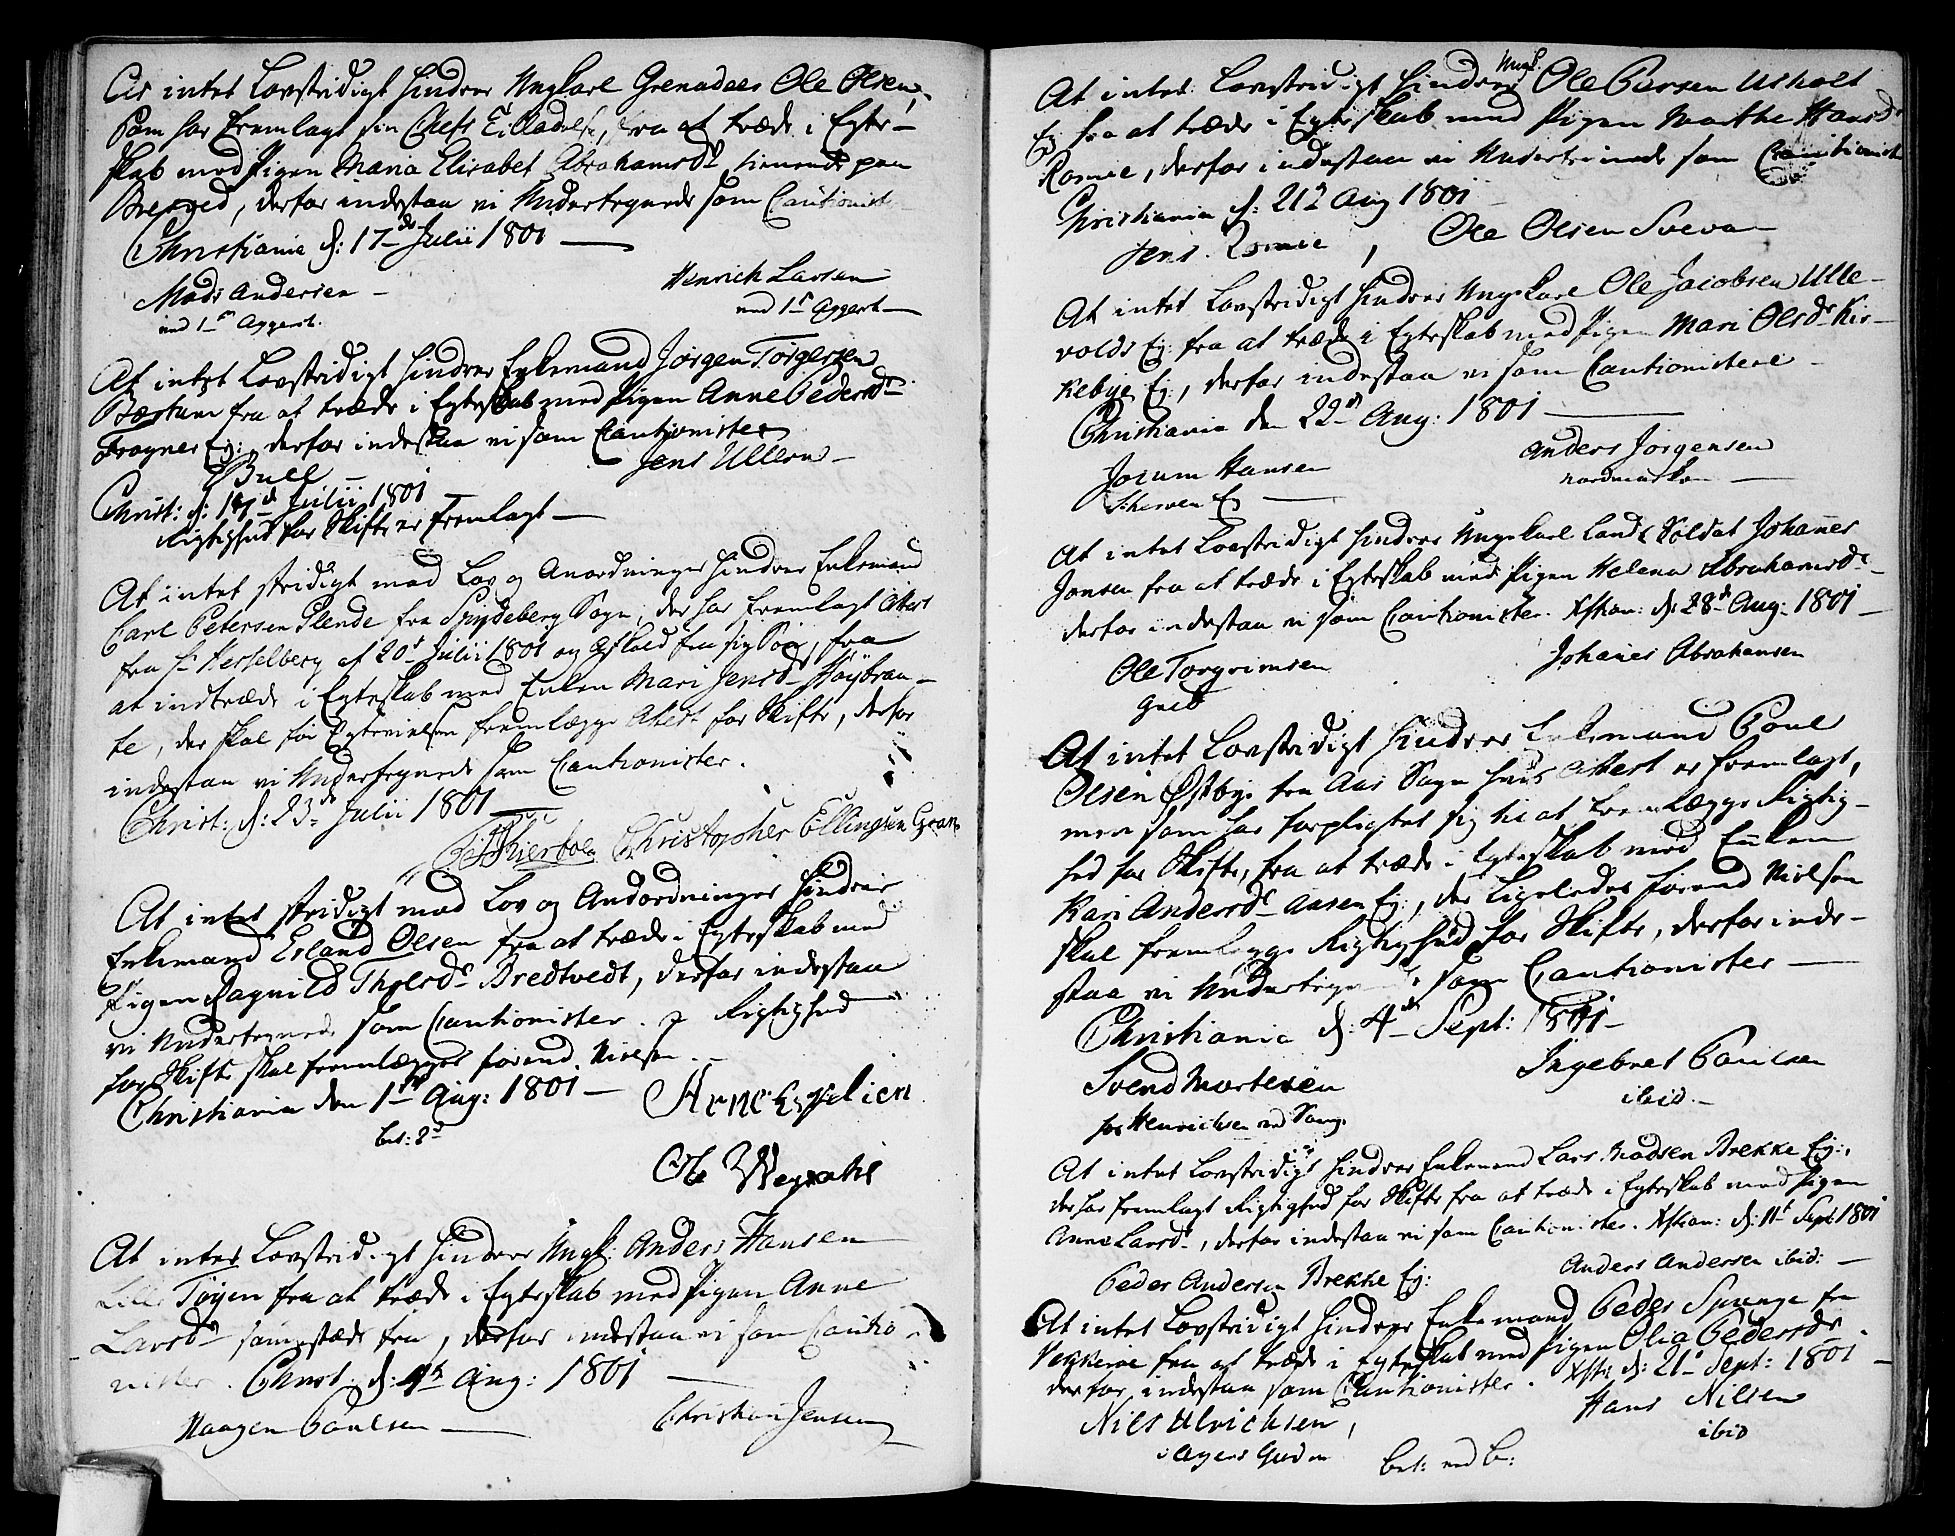 At intet Lovstridigt hindrer Ungkarl Grenadeer Ole Olsen,
som har fremlagt sin Chefs Tilladelse, fra at træde i Egte-
skab med Pigen Maria Elisabet Abrahamsdr tienende paa
derfor indestaa vi Undertegnede som Cautionister
Christiania d: 17de Julii 1801
Mads Andersen Henrich Larsen
ved 1st Aggert. ved 1st Aggert
At intet Lovstridigt hindrer Enkemand Jørgen Torgersen
Bærtum fra at træde i Egteskab med Pigen Anne Pedersdr
Frogner Eg:, derfor indestaa vi som Cautionister
Bull Jens Ullern
Christ: d: Julii 1801
Rigtighed for Skifte er fremlagt
At intet stridigt mod Lov og Anordninger hindrer Enkemand
Carl Petersen Plende fra Spydeberg Sogn, der har fremlagt Attest
fra Hr Hesselberg af 20d Julii 1801 og fra
at indtræde i Egteskab med Enken Mari Jensdr Høybraa-
te, der skal før Egtevielsen fremlægge Attest for Skifte, derfor
indestaa vi Undertegnede som Cautionister.
Christ: d: 23de Julii 1801
Christopher Ellingsen Gran
At intet stridigt mod Lov og Andordninger hindrer
Enkemand Erland Olsen fra at træde i Egteskab med
Pigen Ragnild Bredtvedt, derfor indestaa
vi Undertegnede som Cautionister. Rigtighed
for Skifte skal fremlægges førend Vielsen.
Christiania den 1st Aug: 1801
bet: 2d
Arne
Ole
At intet Lovstridigt hindrer Ungk: Anders Hansen
Lille Tøyen fra at træde i Egteskab med Pigen Anne
Larsdr sammestæds fra, derfor indestaa vi som Cautio-
nister. Christ. d: Aug: 1801
Haagen Paulsen Christian Jensen
At intet Lovstridigt hindrer Ungk: Ole Usholt
Eg fra at træde i Egteskab med Pigen Marthe Hansdr
derfor indestaa vi Undertegnede som Cautionister
Christiania d: 21de Aug 1801
Jens Ole Olsen
At intet Lovstridigt hindrer Ungkarl Ole Jacobsen Ulle-
volds Eg: fra at træde i Egteskab med Pigen Mari Olsdr Kir-
kebye Eg:, derfor indestaa vi som Cautionistere
Christiania den 22d Aug: 1801
Joium Hansen Anders Jørgensen
Eg nordmarken
At intet Lovstridigt hindrer Ungekarl Land Soldat Johannes
Jonsen fra at træde i Egteskab med Pigen Helena Abrahamsdr
derfor indestaa vi som Cautionister. Xstian: d: 28d Aug: 1801
Ole Torgrimsen Johanes Abrahamsen
At intet Lovstridigt hindrer Enkemand Poul
Olsen Østbye fra Aas Sogn hvis Attest er fremlagt,
men som har forpligtet sig til at fremlægge Rigtig-
hed for Skifte, fra at træde i Egteskab med Enken
Kari Andersdr Aasen Eg:, der ligeledes førend Vielsen
skal fremlægge Rigtighed for Skifte, derfor inde-
staa vi Undertegnede som Cautionister
Christiania d: 4d Sept: 1801
Svend Mortesen Ingebret Poulsen
hos Henrichsen ved Sang. ibid.
At intet Lovstridigt hindrer Enkemand Lars Madsen Brekke Eg:,
der har fremlagt Rigtighed for Skifte fra at træde i Egteskab med Pigen
Anne Larsdr, derfor indestaa vi som Cautionister. Xstian: d: 11t Sept 1801
Peder Andersen Brekke Eg: Anders Andersen ibid:
At intet Lovstridigt hindrer Enkemand Peder fra
Vekkerøe fra at træde i Egteskab med Pigen Olia Pedersdr
derfor indestaa som Cautionister. Xstr d: 21d Sept: 1801
Niels Ulrichsen, Hans Nilsen
ibid
bet: ved B: